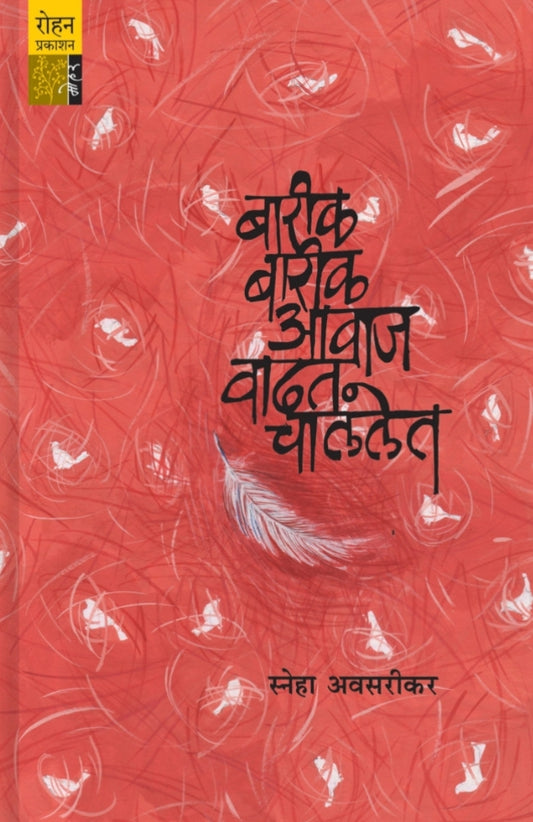 रोहन
प्रकाशन
मोहर
बारीक
बारीक
आवाज
वाढत
चाललेत
स्नेहा अवसरीकर